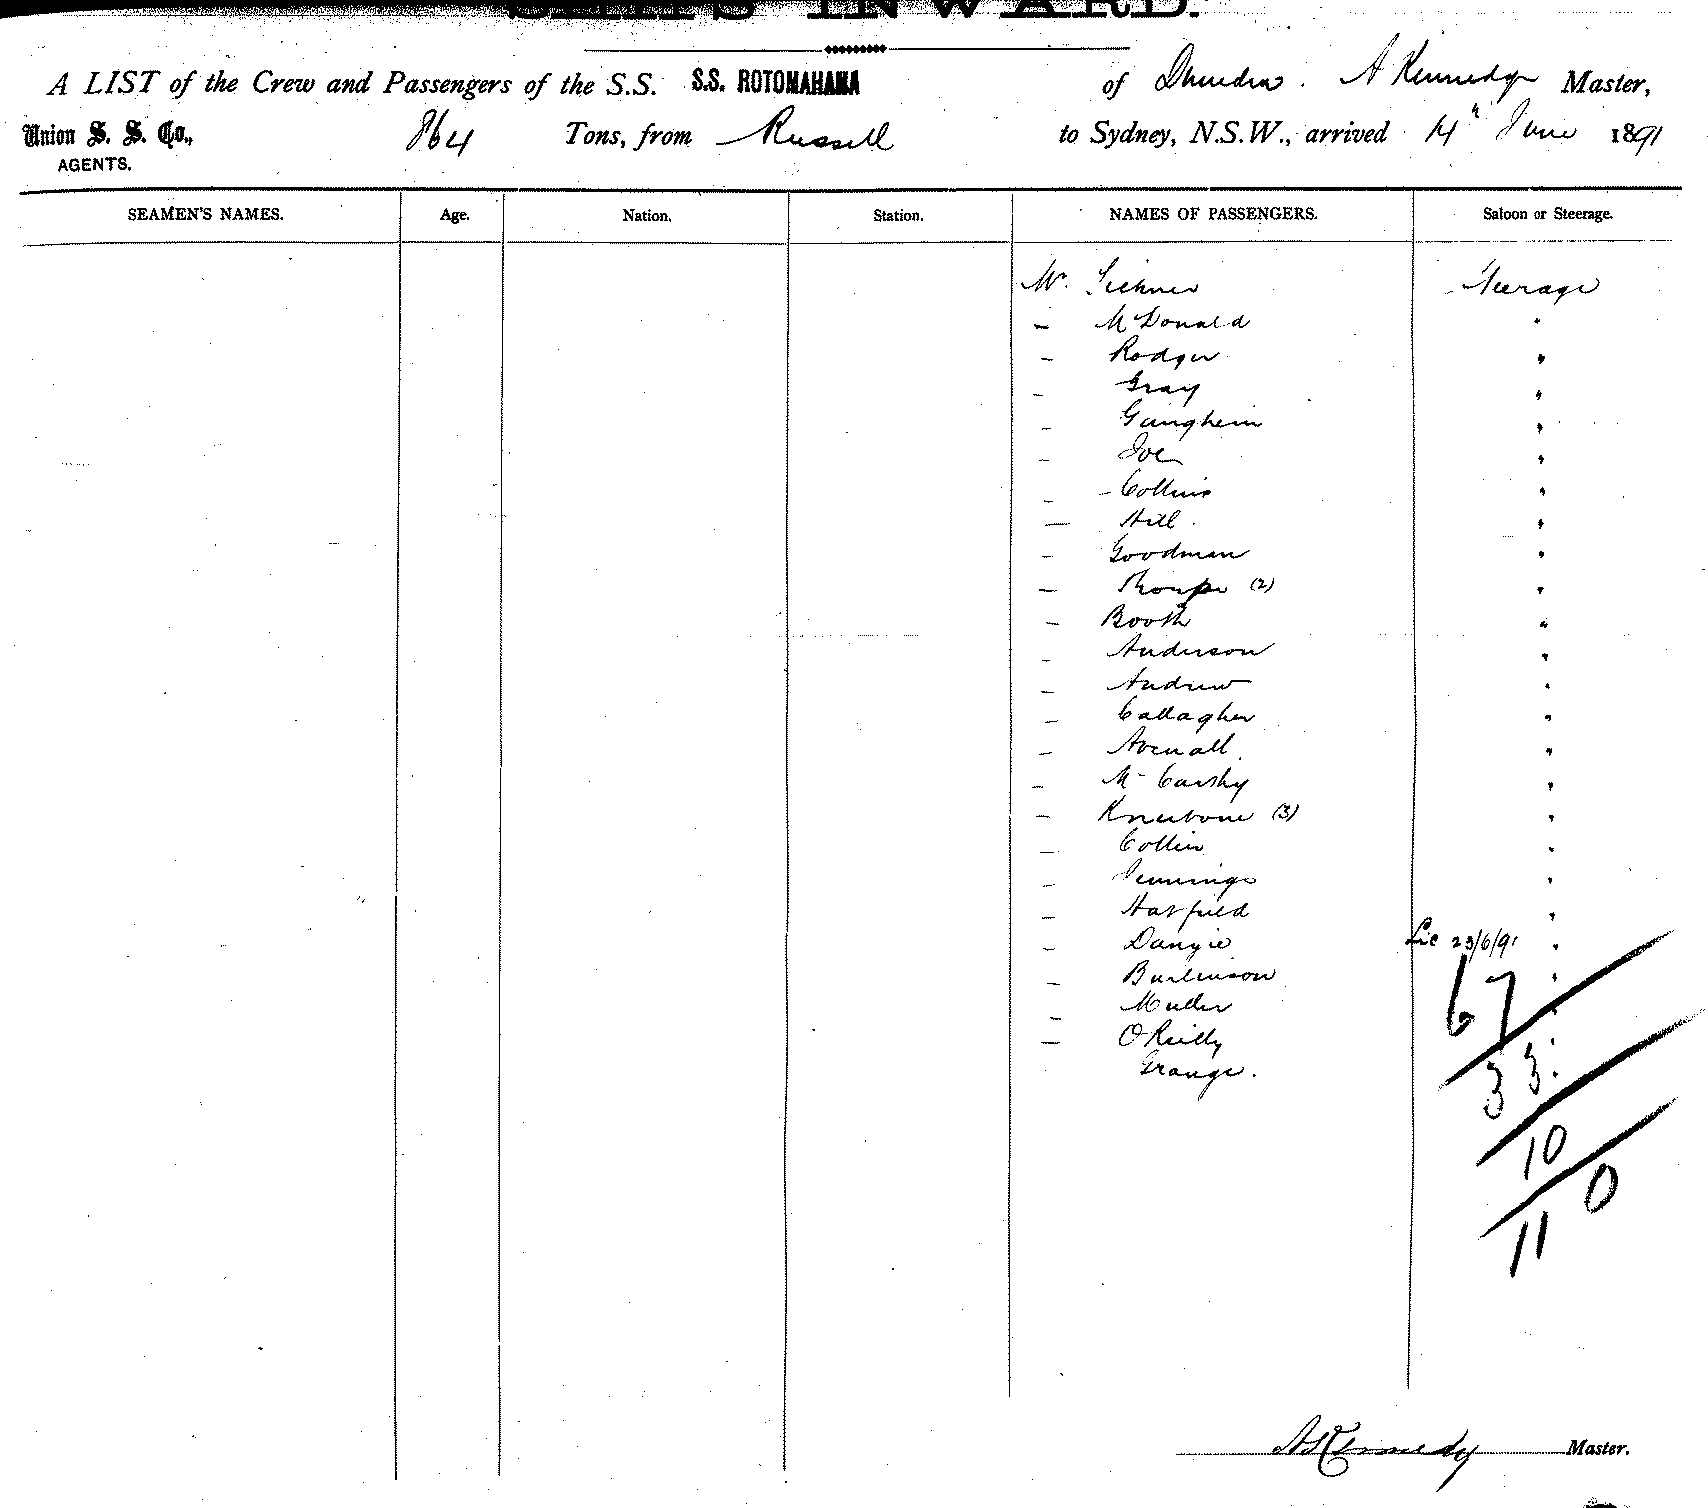 SHIPS INWARD.
A LIST of the Crew and Passengers of the S.S. S.S. ROTOMAHANA of Dunedin. A Kennedy Master,
Union S. S. Co., 864 Tons, from Russell to Sydney, N.S.W., arrived 14" June 1891
AGENTS.
SEAMEN'S NAMES. Age. Nation. Station. NAMES OF PASSENGERS. Saloon or Steerage.
Mr. Steerage
— McDonald "
— Rodger "
— Gray "
— "
— Joe "
— Collins "
— Hill "
— Goodman "
— (2) "
— Booth "
— Anderson "
— Andrew "
— Callagher "
— Avenall "
— McCarthy "
— Kneebone (3) "
— Collin "
— Jennings "
— Hatfield "
— Dangie Lic 23/6/91 "
— Burlinson "
— Muller "
— O'Reilly "
Grange. "
67
33
10
11 0
A Kennedy Master.